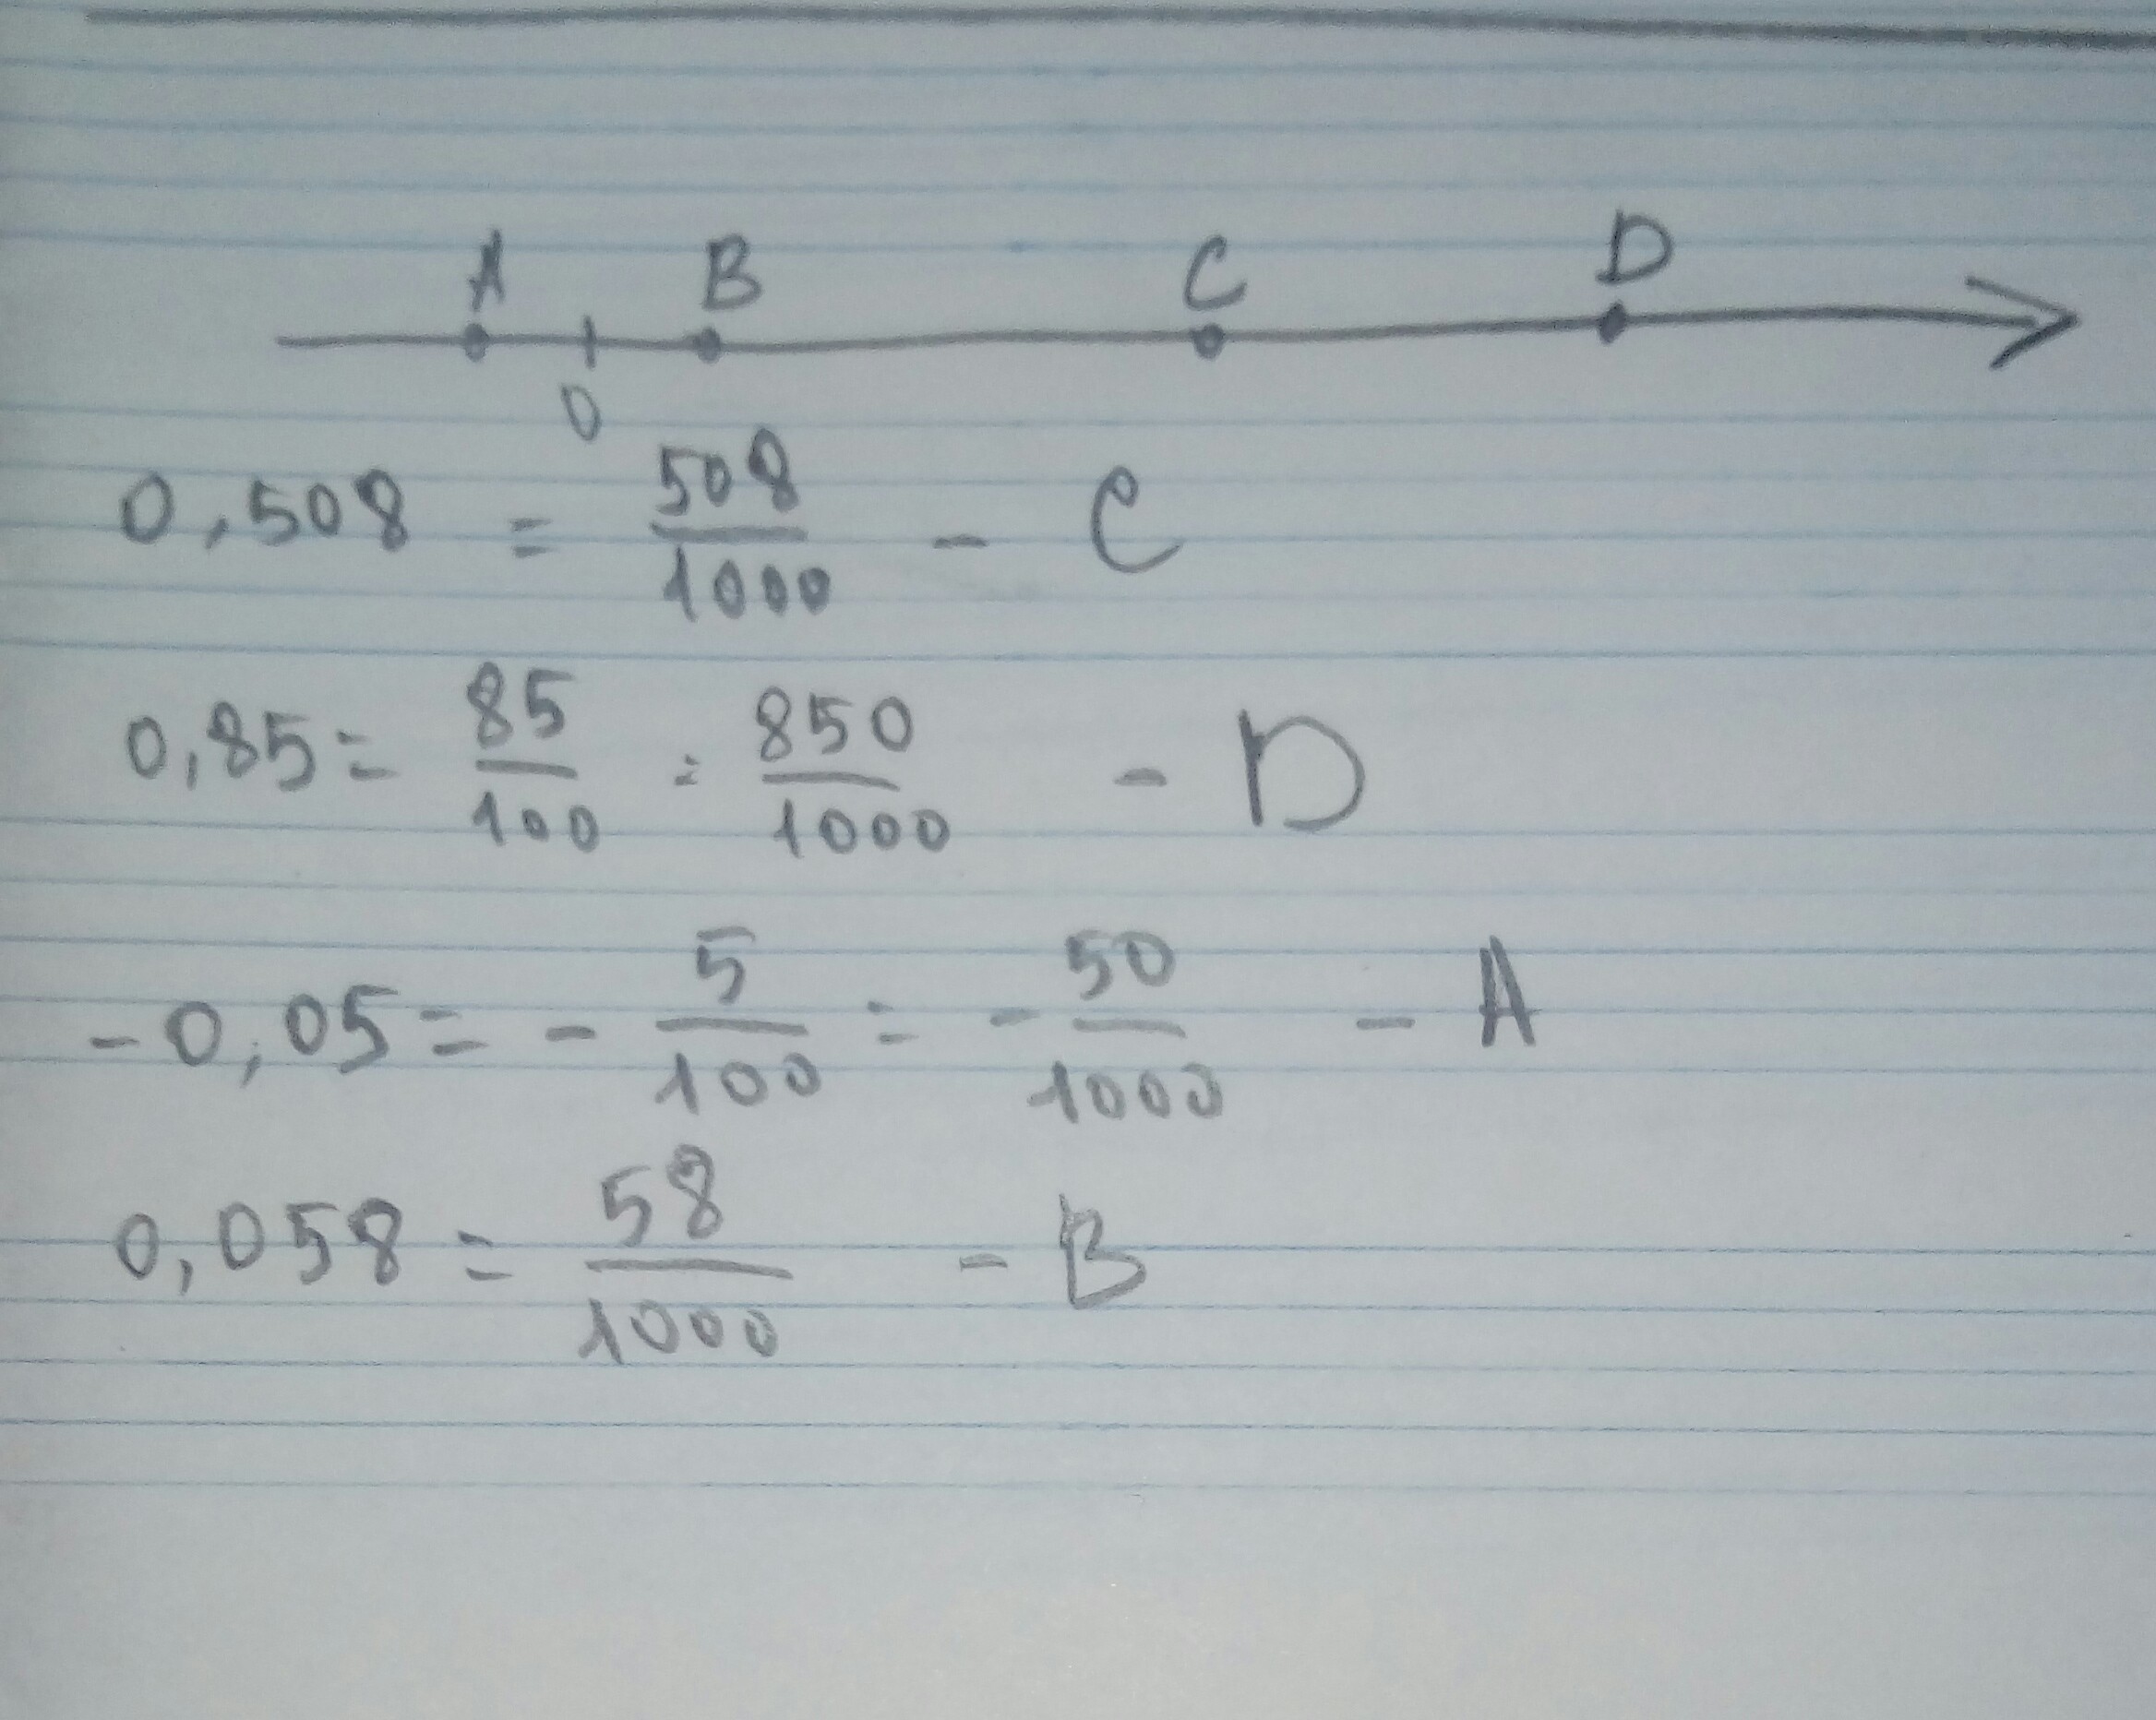 A B C D
0
0,508 = 508/1000 - C
0,85 = 85/100 = 850/1000 - D
-0,05 = - 5/100 = - 50/1000 - A
0,058 = 58/1000 - B